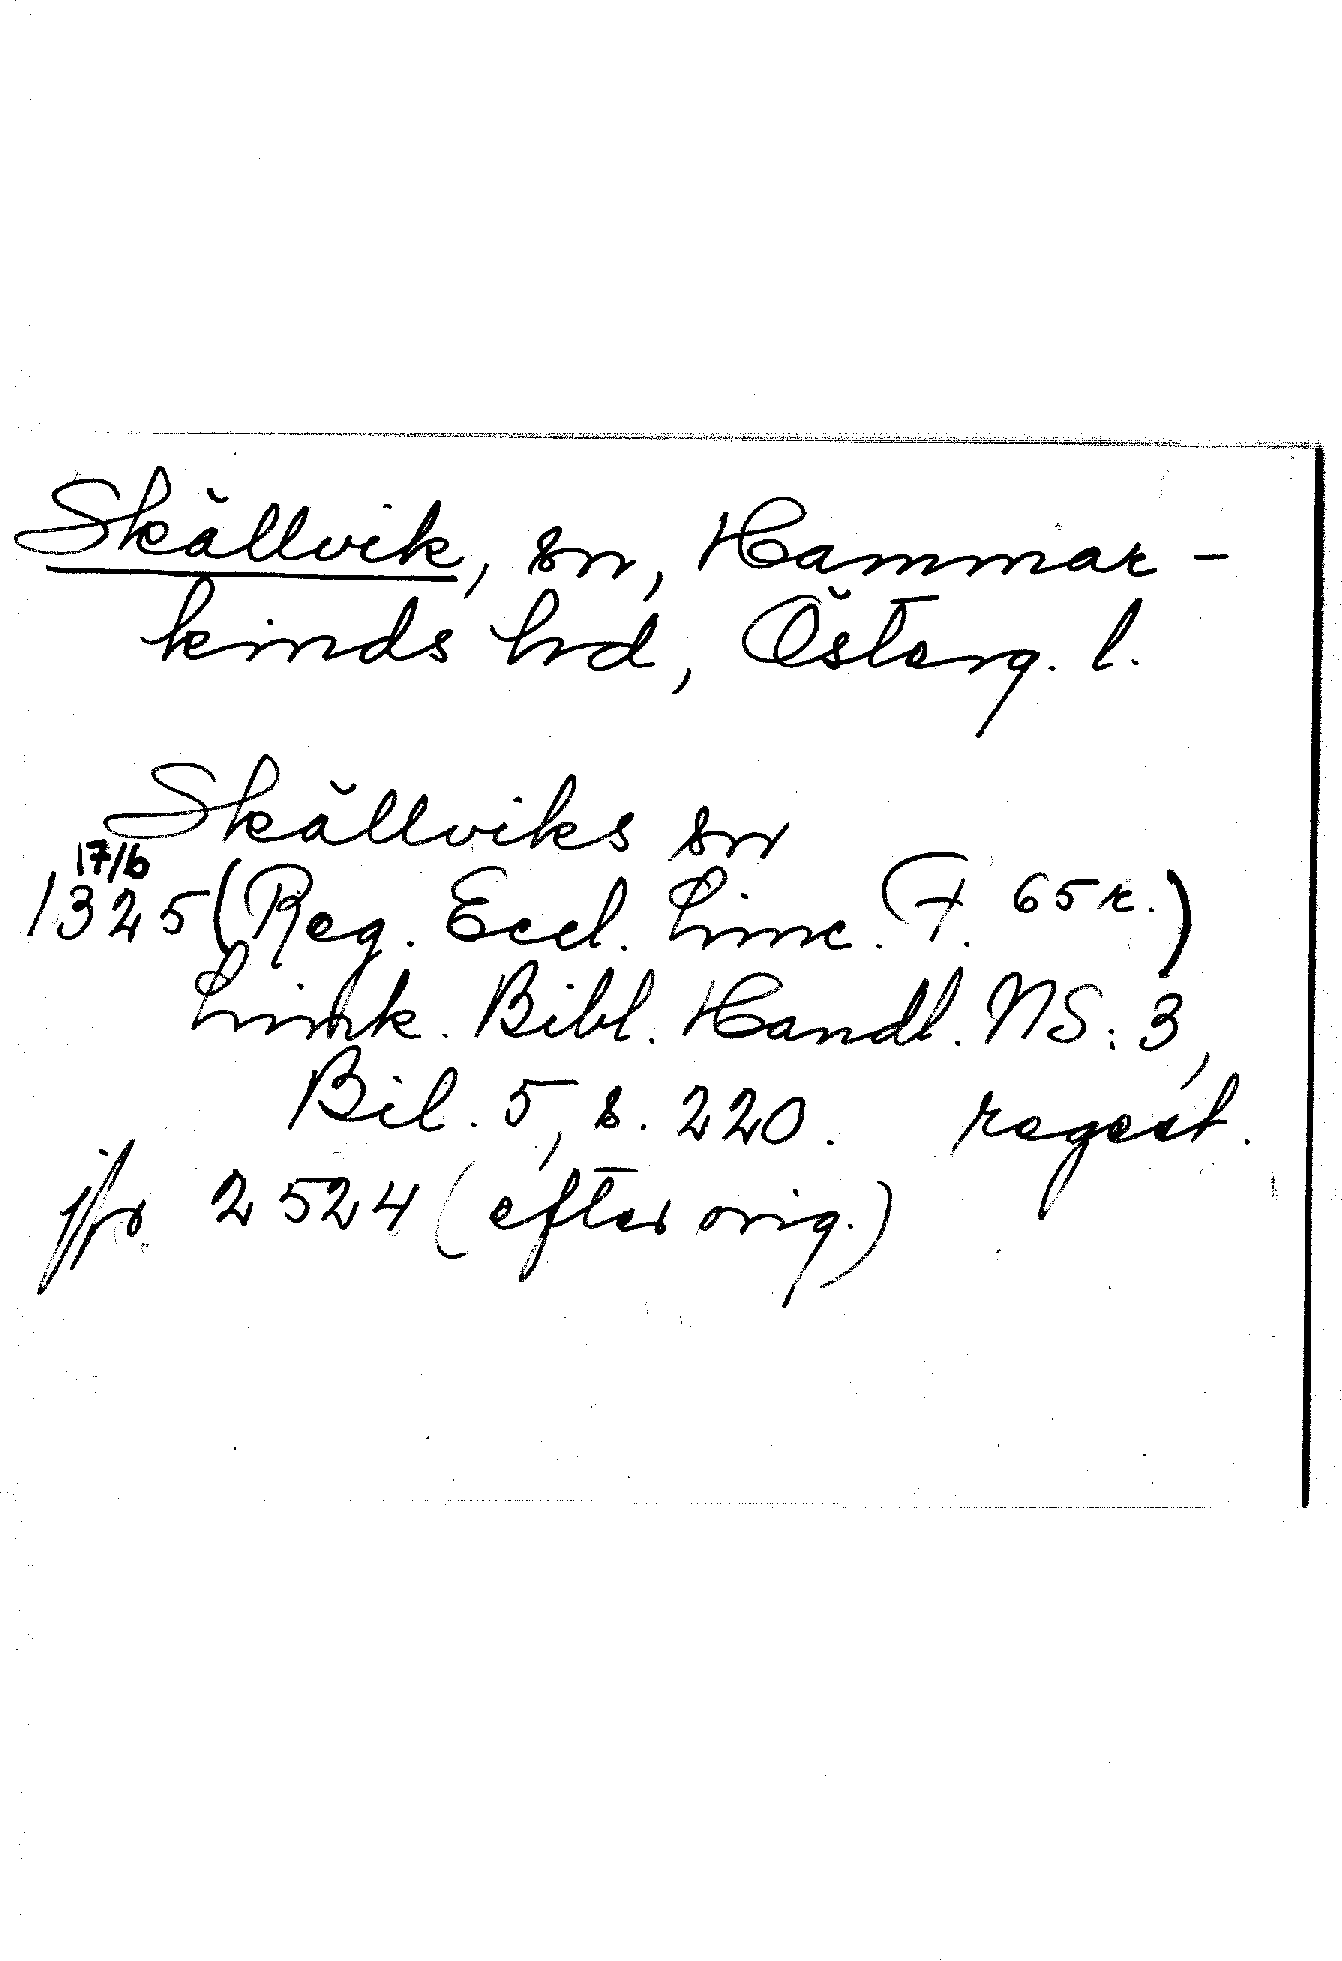 Skällvik, sn, Hammar-
kinds hd, Österg. l.
Skällviks sn
17/6
1325 (Reg. Eccl. Linc. F. 65 r.)
Link. Bibl. Handl. NS: 3,
Bil. 5, s. 220. regest.
jfr 2524 (efter orig.)